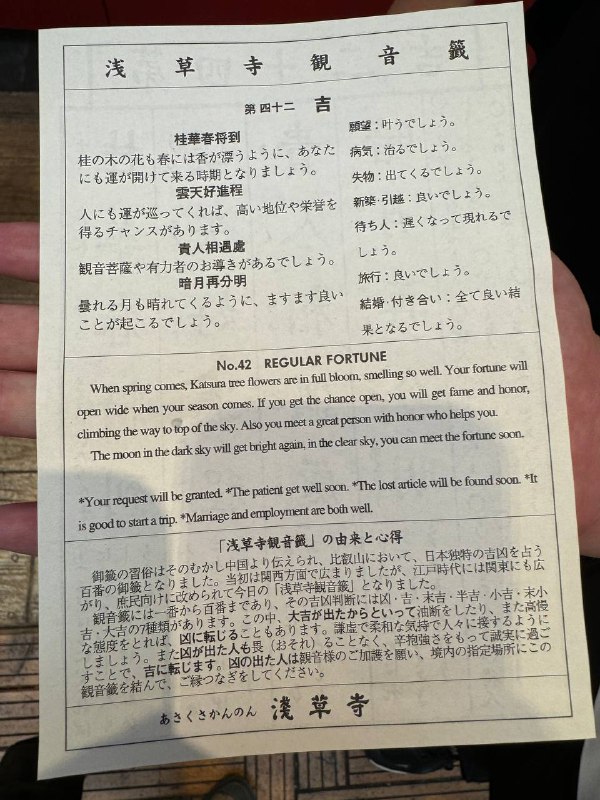 浅草寺観音籤
第四十二 吉
桂華春将到
桂の木の花も春には香が漂うように、あなた
にも運が開けて来る時期となりましょう。
雲天好進程
人にも運が巡ってくれば、高い地位や栄誉を
得るチャンスがあります。
貴人相遇處
観音菩薩や有力者のお導きがあるでしょう。
暗月再分明
曇れる月も晴れてくるように、ますます良い
ことが起こるでしょう。
願望：叶うでしょう。
病気：治るでしょう。
失物：出てくるでしょう。
新築・引越：良いでしょう。
待ち人：遅くなって現れるで
しょう。
旅行：良いでしょう。
結婚・付き合い：全て良い結
果となるでしょう。
No.42 REGULAR FORTUNE
When spring comes, Katsura tree flowers are in full bloom, smelling so well. Your fortune will
open wide when your season comes. If you get the chance open, you will get fame and honor,
climbing the way to top of the sky. Also you meet a great person with honor who helps you.
The moon in the dark sky will get bright again, in the clear sky, you can meet the fortune soon.
*Your request will be granted. *The patient get well soon. *The lost article will be found soon. *It
is good to start a trip. *Marriage and employment are both well.
「浅草寺観音籤」の由来と心得
御籤の習俗はそのむかし中国より伝えられ、比叡山において、日本独特の吉凶を占う
百番の御籤となりました。当初は関西方面で広まりましたが、江戸時代には関東にも広
がり、庶民向けに改められて今日の「浅草寺観音籤」となりました。
観音籤には一番から百番まであり、その吉凶判断には凶・吉・末吉・半吉・小吉・末小
吉・大吉の7種類があります。この中、大吉が出たからといって油断をしたり、また高慢
な態度をとれば、凶に転じることもあります。謙虚で柔和な気持で人々に接するように
しましょう。また凶が出た人も畏（おそれ）ることなく、辛抱強さをもって誠実に過ご
すことで、吉に転じます。凶の出た人は観音様のご加護を願い、境内の指定場所にこの
観音籤を結んで、ご縁つなぎをしてください。
あさくさかんのん 淺草寺